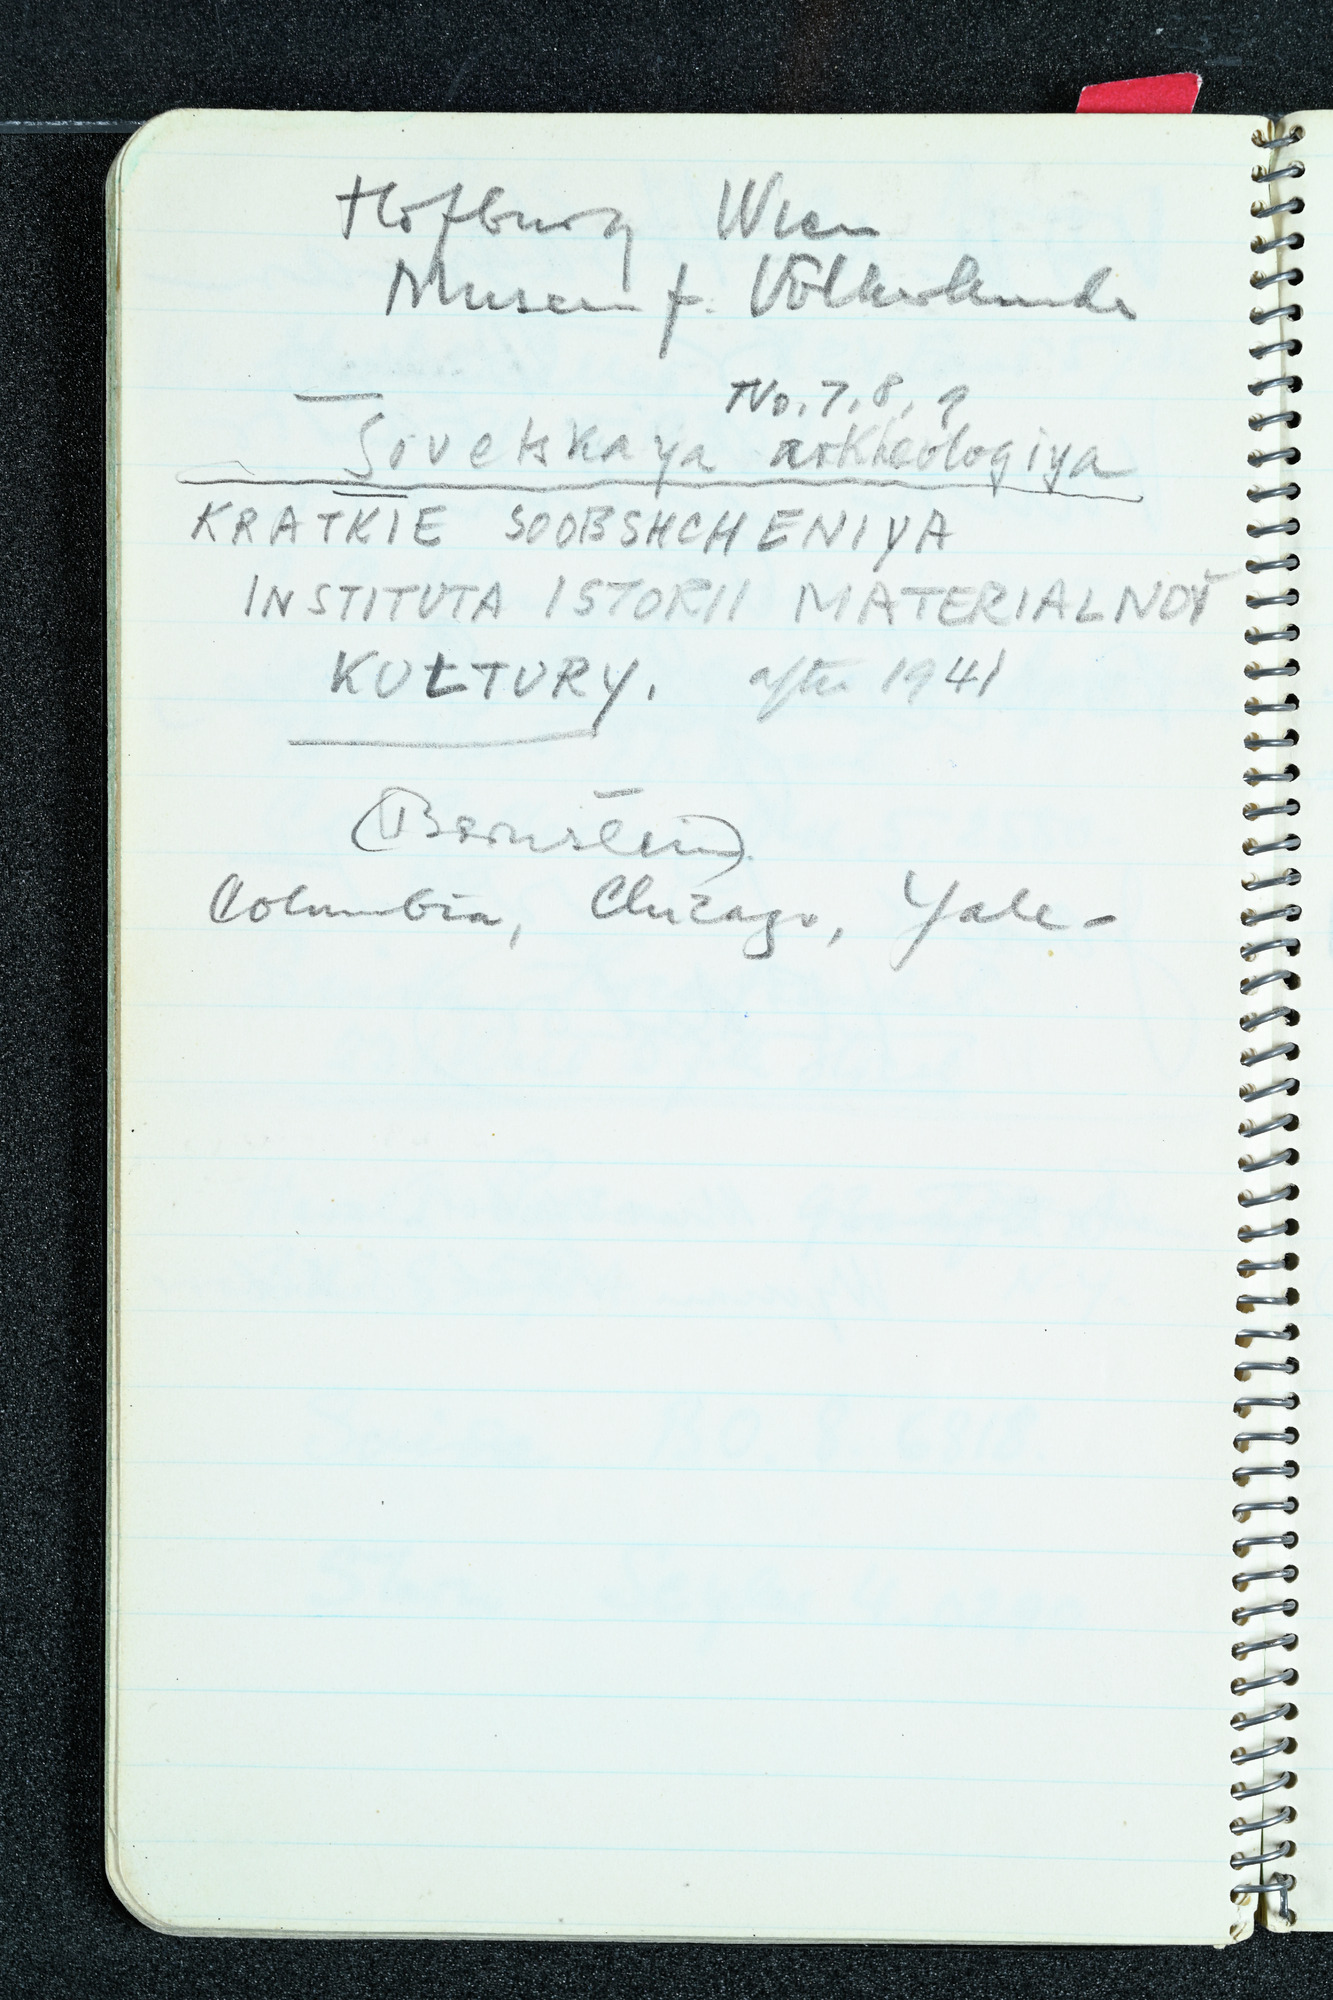 Hofburg Wien
Museum f. Völkerkunde
No. 7, 8, 9
Sovetskaya arkheologiya
KRATKIE SOOBSHCHENIYA
INSTITUTA ISTORII MATERIALNOĬ
KULTURY. after 1941
(Bernštein)
Columbia, Chicago, Yale -